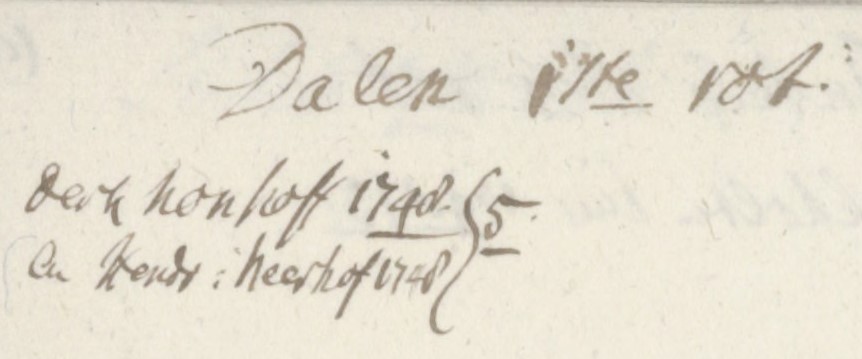 Dalen 1ste rot.
Derk honhoff 1748 } 5.
en Hendr: Neerhof 1748